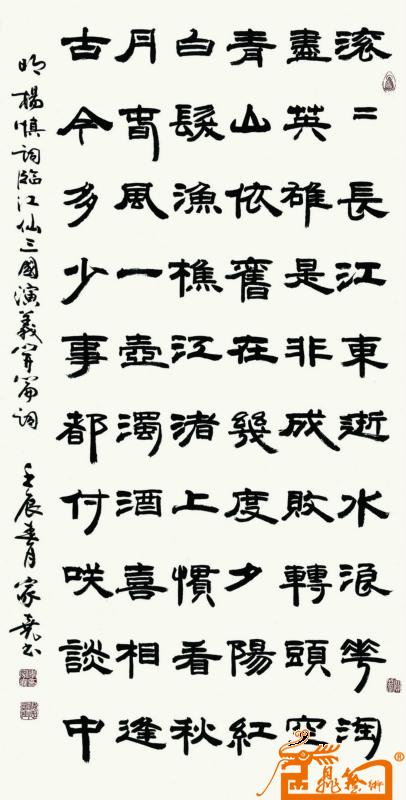 滚〻長江東逝水浪華淘
盡英雄是非成敗轉頭空
青山依舊在幾度夕陽紅
白髮漁樵江渚上慣看秋
月春風一壺濁酒喜相逢
古今多少事都付咲談中
明楊慎詞臨江仙三國演義开篇詞 壬辰春月家堯书